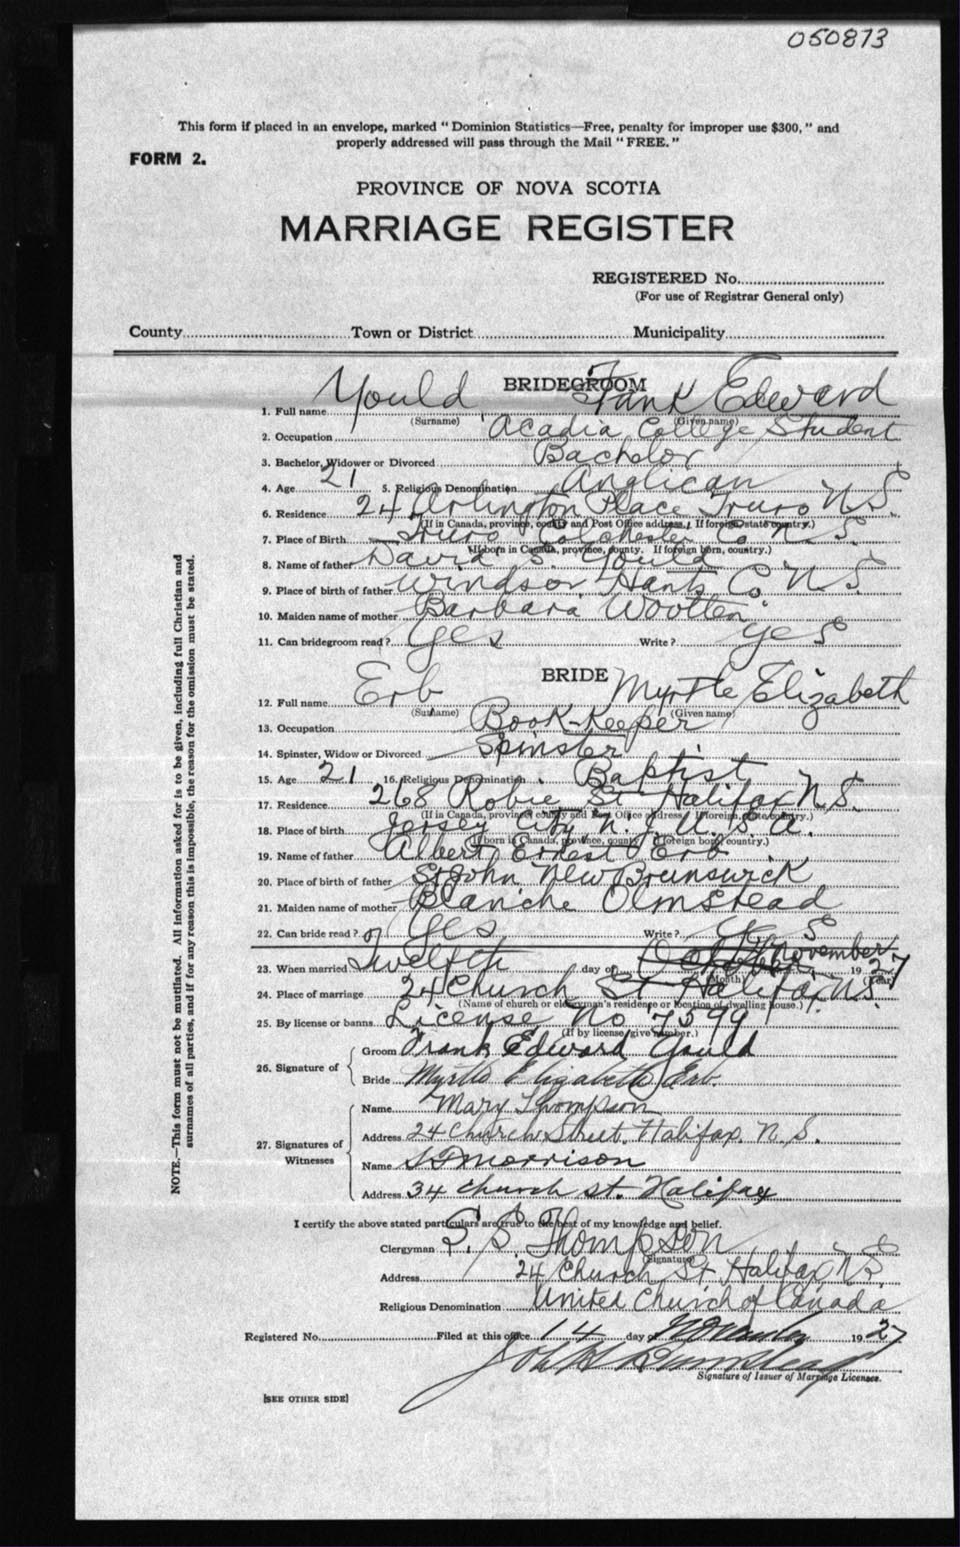 050873
This form if placed in an envelope, marked "Dominion Statistics—Free, penalty for improper use $300," and
properly addressed will pass through the Mail "FREE."
FORM 2.
PROVINCE OF NOVA SCOTIA
MARRIAGE REGISTER
REGISTERED No.
(For use of Registrar General only)
County Town or District Municipality
BRIDEGROOM
1. Full name Yould Frank Edward
(Surname) (Given name)
2. Occupation Acadia College Student
3. Bachelor, Widower or Divorced Bachelor
4. Age 21 5. Religious Denomination Anglican
6. Residence 24 Arlington Place Truro N S.
(If in Canada, province, county and Post Office address. If foreign state country.)
7. Place of Birth Truro Colchester Co N. S.
(If born in Canada, province, county. If foreign born, country.)
8. Name of father David S. Yould
9. Place of birth of father Windsor Hants Co. N S
10. Maiden name of mother Barbara Wootten
11. Can bridegroom read? Yes Write? yes
BRIDE
12. Full name Erb Myrtle Elizabeth
(Surname) (Given name)
13. Occupation Book-Keeper
14. Spinster, Widow or Divorced Spinster
15. Age 21 16. Religious Denomination Baptist
17. Residence 268 Robie St Halifax N. S.
(If in Canada, province, county and Post Office address. If foreign, state country.)
18. Place of birth Jersey City N. J. U. S. A.
(If born in Canada, province, county. If foreign born, country.)
19. Name of father Albert Ernest Erb
20. Place of birth of father St John New Brunswick
21. Maiden name of mother Blanche Olmstead
22. Can bride read? Yes Write? Yes
23. When married Twelfth day of November 1927
(Month) (Year)
24. Place of marriage 24 Church St Halifax N.S.
(Name of church or clergyman's residence or location of dwelling house.)
25. By license or banns License No 7599
(If by license give number.)
26. Signature of Groom Frank Edward Yould
Bride Myrtle Elizabeth Erb.
27. Signatures of Witnesses
Name Mary Thompson
Address 24 Church Street, Halifax, N. S.
Name Morrison
Address 34 Church St. Halifax
I certify the above stated particulars are true to the best of my knowledge and belief.
Clergyman S. S. Thompson
(Signature)
Address 24 Church St Halifax N S.
Religious Denomination United Church of Canada
Registered No. Filed at this office 14 day of November 1927
Signature of Issuer of Marriage Licenses.
[SEE OTHER SIDE]
NOTE.—This form must not be mutilated. All information asked for is to be given, including full Christian and
surnames of all parties, and if for any reason this is impossible, the reason for the omission must be stated.